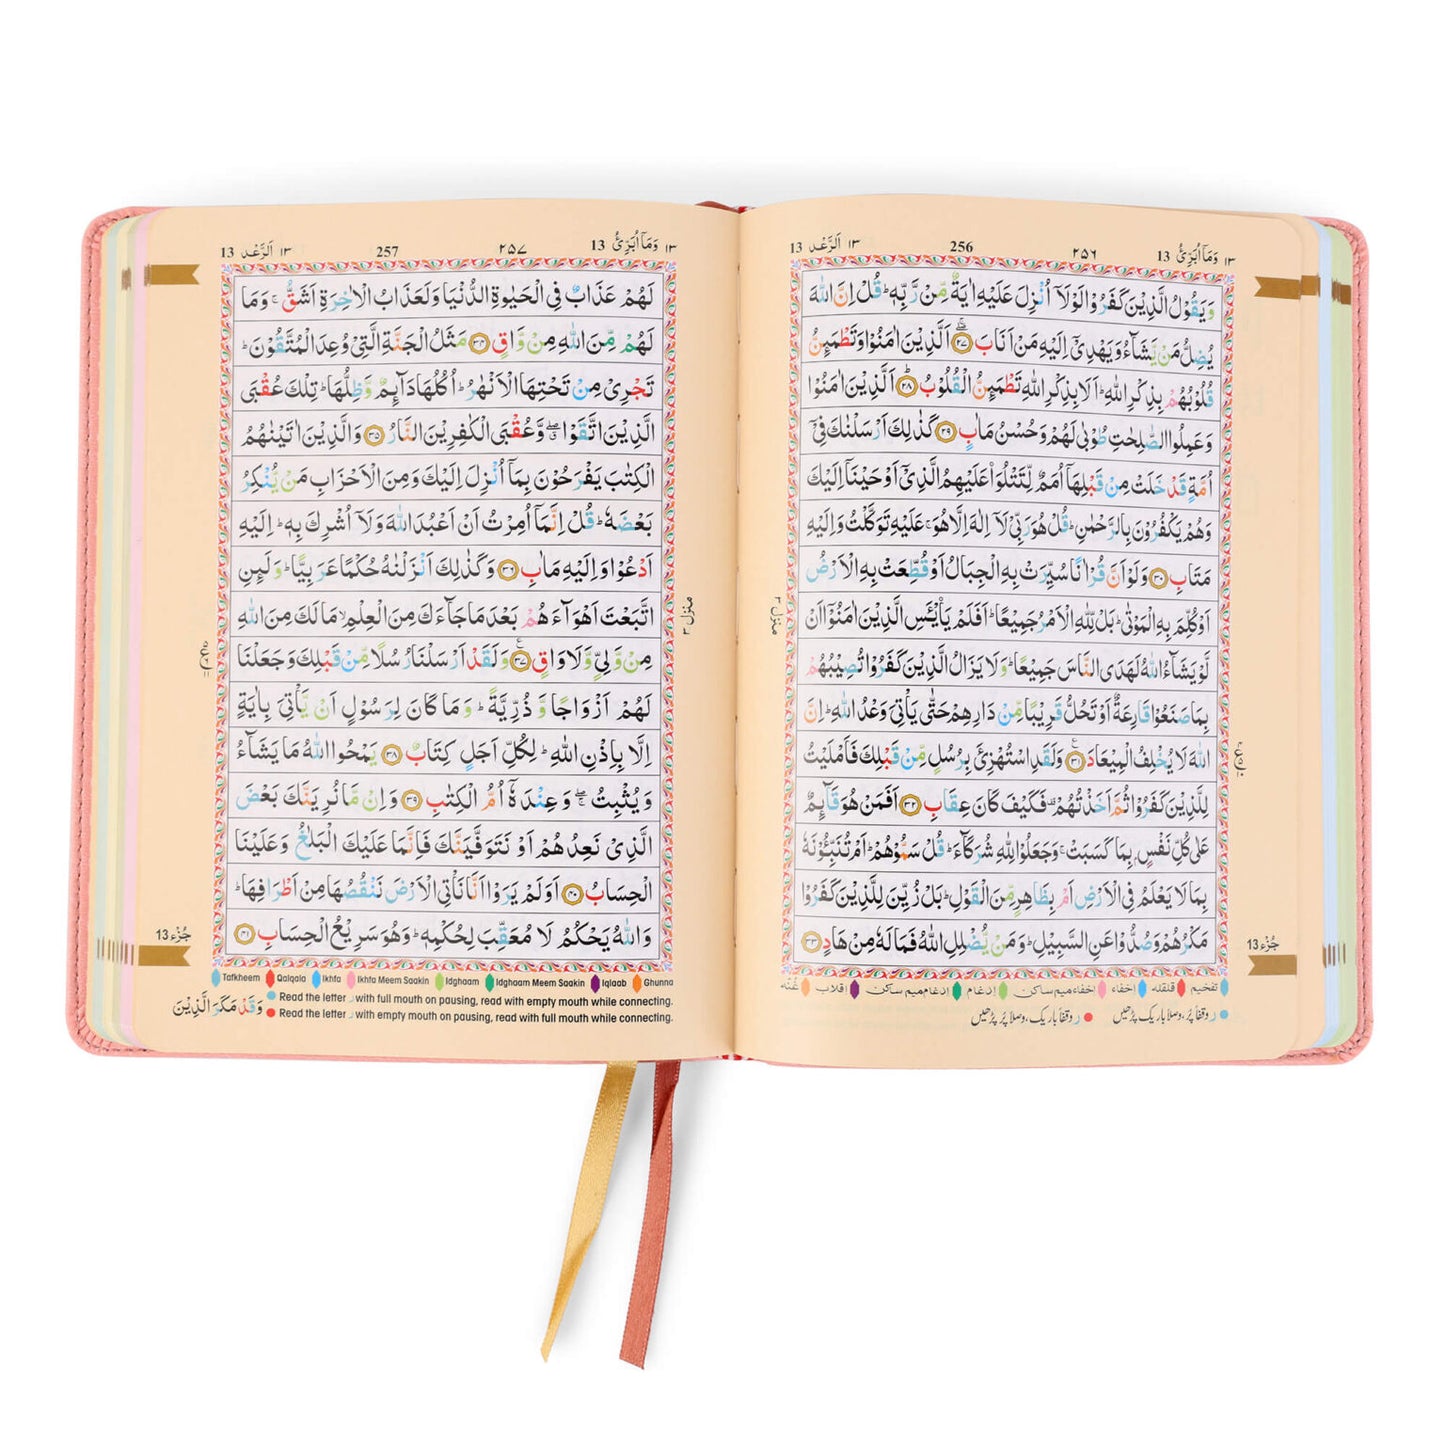 ١٣ وَمَآ اُبَرِّئُ 13
٢٥٦
256
١٣ اَلرَّعْد 13
وَيَقُوْلُ الَّذِيْنَ كَفَرُوْا لَوْلَآ اُنْزِلَ عَلَيْهِ اٰيَةٌ مِّنْ رَّبِّهٖ ؕ قُلْ اِنَّ اللّٰهَ
يُضِلُّ مَنْ يَّشَآءُ وَيَهْدِيْٓ اِلَيْهِ مَنْ اَنَابَ ۖۚ ۝٢٧ اَلَّذِيْنَ اٰمَنُوْا وَتَطْمَىِٕنُّ
قُلُوْبُهُمْ بِذِكْرِ اللّٰهِ ؕ اَلَا بِذِكْرِ اللّٰهِ تَطْمَىِٕنُّ الْقُلُوْبُ ؕ ۝٢٨ اَلَّذِيْنَ اٰمَنُوْا
وَعَمِلُوا الصّٰلِحٰتِ طُوْبٰى لَهُمْ وَحُسْنُ مَاٰبٍ ۝٢٩ كَذٰلِكَ اَرْسَلْنٰكَ فِيْٓ
اُمَّةٍ قَدْ خَلَتْ مِنْ قَبْلِهَآ اُمَمٌ لِّتَتْلُوَا۟ عَلَيْهِمُ الَّذِيْٓ اَوْحَيْنَآ اِلَيْكَ
وَهُمْ يَكْفُرُوْنَ بِالرَّحْمٰنِ ؕ قُلْ هُوَ رَبِّيْ لَآ اِلٰهَ اِلَّا هُوَ ۚ عَلَيْهِ تَوَكَّلْتُ وَاِلَيْهِ
مَتَابِ ۝٣٠ وَلَوْ اَنَّ قُرْاٰنًا سُيِّرَتْ بِهِ الْجِبَالُ اَوْ قُطِّعَتْ بِهِ الْاَرْضُ
اَوْ كُلِّمَ بِهِ الْمَوْتٰى ؕ بَلْ لِّلّٰهِ الْاَمْرُ جَمِيْعًا ؕ اَفَلَمْ يَا۟يْـَٔسِ الَّذِيْنَ اٰمَنُوْٓا اَنْ
لَّوْ يَشَآءُ اللّٰهُ لَهَدَى النَّاسَ جَمِيْعًا ؕ وَلَا يَزَالُ الَّذِيْنَ كَفَرُوْا تُصِيْبُهُمْ
بِمَا صَنَعُوْا قَارِعَةٌ اَوْ تَحُلُّ قَرِيْبًا مِّنْ دَارِهِمْ حَتّٰى يَاْتِيَ وَعْدُ اللّٰهِ ؕ اِنَّ
اللّٰهَ لَا يُخْلِفُ الْمِيْعَادَ ۝٣١ وَلَقَدِ اسْتُهْزِئَ بِرُسُلٍ مِّنْ قَبْلِكَ فَاَمْلَيْتُ
لِلَّذِيْنَ كَفَرُوْا ثُمَّ اَخَذْتُهُمْ ۫ فَكَيْفَ كَانَ عِقَابِ ۝٣٢ اَفَمَنْ هُوَ قَآىِٕمٌ
عَلٰى كُلِّ نَفْسٍۭ بِمَا كَسَبَتْ ۚ وَجَعَلُوْا لِلّٰهِ شُرَكَآءَ ؕ قُلْ سَمُّوْهُمْ ؕ اَمْ تُنَبِّـُٔوْنَهٗ
بِمَا لَا يَعْلَمُ فِي الْاَرْضِ اَمْ بِظَاهِرٍ مِّنَ الْقَوْلِ ؕ بَلْ زُيِّنَ لِلَّذِيْنَ كَفَرُوْا
مَكْرُهُمْ وَصُدُّوْا عَنِ السَّبِيْلِ ؕ وَمَنْ يُّضْلِلِ اللّٰهُ فَمَا لَهٗ مِنْ هَادٍ ۝٣٣
منزل ٣
جُزْء 13
تفخيم قلقله إخفاء إخفاء ميم ساكن إدغام إدغام ميم ساكن إقلاب غُنّه
ر وقفاً پُر، وصلاً باریک پڑھیں ر وقفاً باریک، وصلاً پُر پڑھیں
١٣ وَمَآ اُبَرِّئُ 13
٢٥٧
257
١٣ اَلرَّعْد 13
لَهُمْ عَذَابٌ فِي الْحَيٰوةِ الدُّنْيَا وَلَعَذَابُ الْاٰخِرَةِ اَشَقُّ ۚ وَمَا
لَهُمْ مِّنَ اللّٰهِ مِنْ وَّاقٍ ۝٣٤ مَثَلُ الْجَنَّةِ الَّتِيْ وُعِدَ الْمُتَّقُوْنَ ؕ
تَجْرِيْ مِنْ تَحْتِهَا الْاَنْهٰرُ ؕ اُكُلُهَا دَآىِٕمٌ وَّظِلُّهَا ؕ تِلْكَ عُقْبَى
الَّذِيْنَ اتَّقَوْا ۖۗ وَّعُقْبَى الْكٰفِرِيْنَ النَّارُ ۝٣٥ وَالَّذِيْنَ اٰتَيْنٰهُمُ
الْكِتٰبَ يَفْرَحُوْنَ بِمَآ اُنْزِلَ اِلَيْكَ وَمِنَ الْاَحْزَابِ مَنْ يُّنْكِرُ
بَعْضَهٗ ؕ قُلْ اِنَّمَآ اُمِرْتُ اَنْ اَعْبُدَ اللّٰهَ وَلَآ اُشْرِكَ بِهٖ ؕ اِلَيْهِ
اَدْعُوْا وَاِلَيْهِ مَاٰبِ ۝٣٦ وَكَذٰلِكَ اَنْزَلْنٰهُ حُكْمًا عَرَبِيًّا ؕ وَلَىِٕنِ
اتَّبَعْتَ اَهْوَآءَهُمْ بَعْدَ مَا جَآءَكَ مِنَ الْعِلْمِ ۙ مَا لَكَ مِنَ اللّٰهِ
مِنْ وَّلِيٍّ وَّلَا وَاقٍ ۝٣٧ وَلَقَدْ اَرْسَلْنَا رُسُلًا مِّنْ قَبْلِكَ وَجَعَلْنَا
لَهُمْ اَزْوَاجًا وَّذُرِّيَّةً ؕ وَمَا كَانَ لِرَسُوْلٍ اَنْ يَّاْتِيَ بِاٰيَةٍ
اِلَّا بِاِذْنِ اللّٰهِ ؕ لِكُلِّ اَجَلٍ كِتَابٌ ۝٣٨ يَمْحُوا اللّٰهُ مَا يَشَآءُ
وَيُثْبِتُ ۖۚ وَعِنْدَهٗٓ اُمُّ الْكِتٰبِ ۝٣٩ وَاِنْ مَّا نُرِيَنَّكَ بَعْضَ
الَّذِيْ نَعِدُهُمْ اَوْ نَتَوَفَّيَنَّكَ فَاِنَّمَا عَلَيْكَ الْبَلٰغُ وَعَلَيْنَا
الْحِسَابُ ۝٤٠ اَوَلَمْ يَرَوْا اَنَّا نَاْتِي الْاَرْضَ نَنْقُصُهَا مِنْ اَطْرَافِهَا ؕ
وَاللّٰهُ يَحْكُمُ لَا مُعَقِّبَ لِحُكْمِهٖ ؕ وَهُوَ سَرِيْعُ الْحِسَابِ ۝٤١
منزل ٣
جُزْء 13
Tafkheem Qalqala Ikhfa Ikhfa Meem Saakin Idghaam Idghaam Meem Saakin Iqlaab Ghunna
Read the letter ر with full mouth on pausing, read with empty mouth while connecting.
Read the letter ر with empty mouth on pausing, read with full mouth while connecting.
وَقَدْ مَكَرَ الَّذِيْنَ